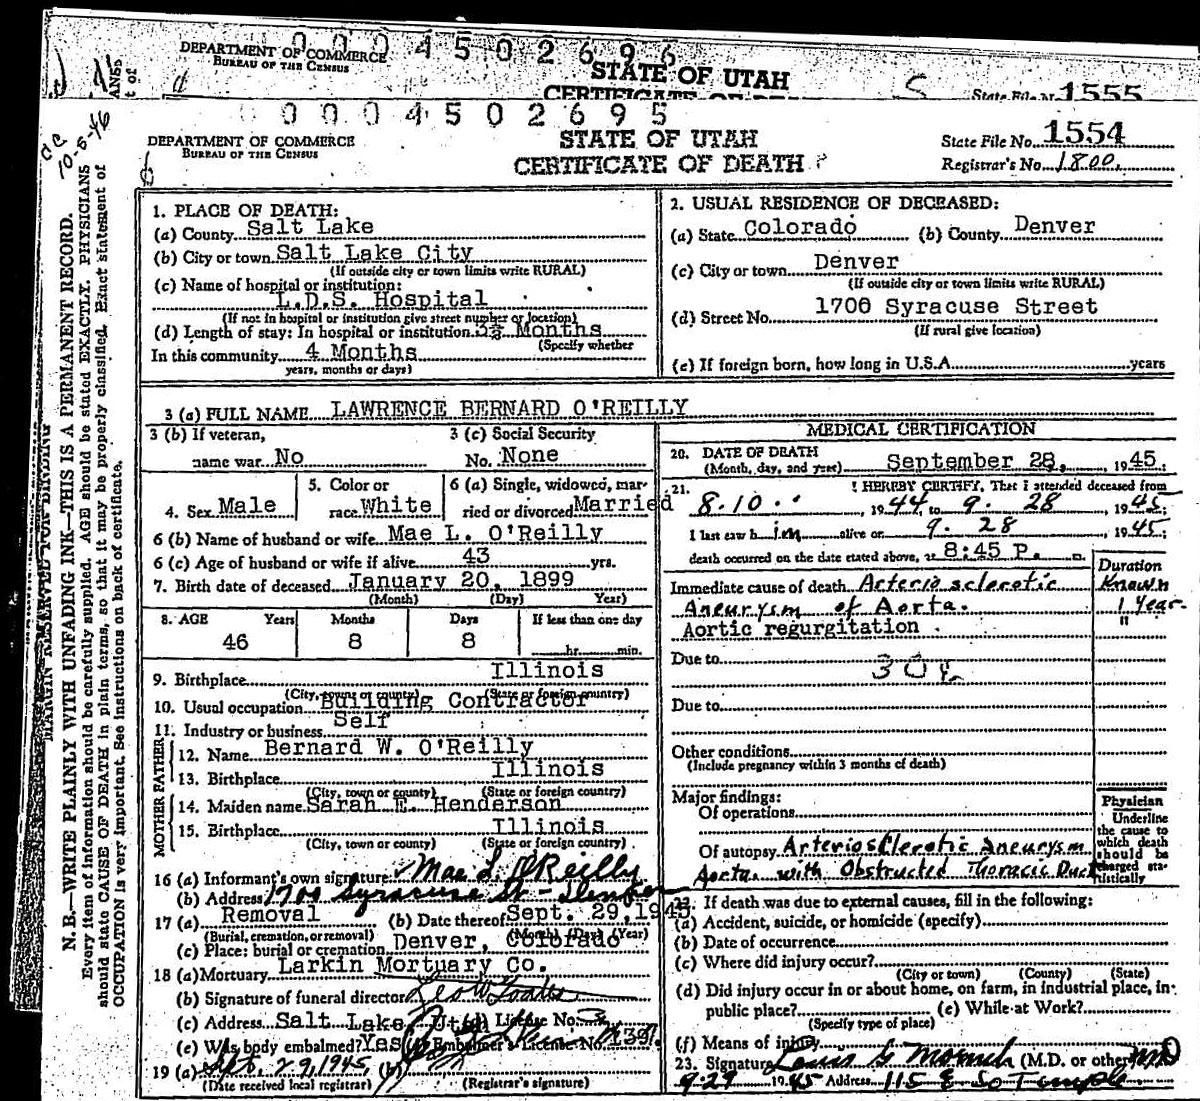 0 0 0 4 5 0 2 6 9 6
DEPARTMENT OF COMMERCE
BUREAU OF THE CENSUS
STATE OF UTAH
CERTIFICATE OF
State File No. 1555
0 0 0 4 5 0 2 6 9 5
cc 10-5-46
DEPARTMENT OF COMMERCE
BUREAU OF THE CENSUS
STATE OF UTAH
CERTIFICATE OF DEATH
State File No. 1554
Registrar's No. 1800.
MARGIN RESERVED FOR BINDING
N. B.—WRITE PLAINLY WITH UNFADING INK—THIS IS A PERMANENT RECORD.
Every item of information should be carefully supplied. AGE should be stated EXACTLY. PHYSICIANS
should state CAUSE OF DEATH in plain terms, so that it may be properly classified. Exact statement of
OCCUPATION is very important. See instructions on back of certificate.
1. PLACE OF DEATH:
(a) County Salt Lake
(b) City or town Salt Lake City
(If outside city or town limits write RURAL)
(c) Name of hospital or institution:
L.D.S. Hospital
(If not in hospital or institution give street number or location)
(d) Length of stay: In hospital or institution Months
(Specify whether
In this community 4 Months
years, months or days)
2. USUAL RESIDENCE OF DECEASED:
(a) State Colorado (b) County Denver
(c) City or town Denver
(If outside city or town limits write RURAL)
(d) Street No. 1706 Syracuse Street
(If rural give location)
(e) If foreign born, how long in U.S.A. years
3 (a) FULL NAME LAWRENCE BERNARD O'REILLY
3 (b) If veteran, name war No
3 (c) Social Security No. None
4. Sex Male
5. Color or race White
6 (a) Single, widowed, married or divorced Married
6 (b) Name of husband or wife Mae L. O'Reilly
6 (c) Age of husband or wife if alive 43 yrs.
7. Birth date of deceased January 20, 1899
(Month) (Day) Year)
8. AGE Years Months Days If less than one day
46 8 8 hr. min.
9. Birthplace Illinois
(City, town or county) (State or foreign country)
10. Usual occupation Building Contractor
11. Industry or business Self
FATHER
12. Name Bernard W. O'Reilly
13. Birthplace Illinois
(City, town or county) (State or foreign country)
MOTHER
14. Maiden name Sarah E. Henderson
15. Birthplace Illinois
(City, town or county) (State or foreign country)
16 (a) Informant's own signature Mae L. O'Reilly
(b) Address 1700 Syracuse St - Denver
17 (a) Removal (b) Date thereof Sept. 29, 1945
(Burial, cremation, or removal) (Month) (Day) (Year)
(c) Place: burial or cremation Denver, Colorado
18 (a) Mortuary Larkin Mortuary Co.
(b) Signature of funeral director
(c) Address Salt Lake, Utah (d) License No. 3
(e) Was body embalmed? Yes Embalmer's License No. 139
19 (a) Sept. 29, 1945, (b)
(Date received local registrar) (Registrar's signature)
MEDICAL CERTIFICATION
20. DATE OF DEATH
(Month, day, and year) September 28, 1945
21. I HEREBY CERTIFY, That I attended deceased from
8-10 1944, to 9-28 1945;
I last saw h im alive on 9-28 1945;
death occurred on the date stated above, at 8:45 P. m.
Duration
Immediate cause of death Arteriosclerotic Known
Aneurysm of Aorta. 1 Year
Aortic regurgitation "
Due to
Due to
Other conditions
(Include pregnancy within 3 months of death)
Major findings:
Of operations
Of autopsy Arteriosclerotic Aneurysm
Aorta with Obstructed Thoracic Duct
Physician
Underline
the cause to
which death
should be
charged sta-
tistically
22. If death was due to external causes, fill in the following:
(a) Accident, suicide, or homicide (specify)
(b) Date of occurrence
(c) Where did injury occur?
(City or town) (County) (State)
(d) Did injury occur in or about home, on farm, in industrial place, in
public place? (e) While at Work?
(Specify type of place)
(f) Means of injury
23. Signature Louis G. Moench (M.D. or other) MD
9-29 1945 Address 115 E So Temple